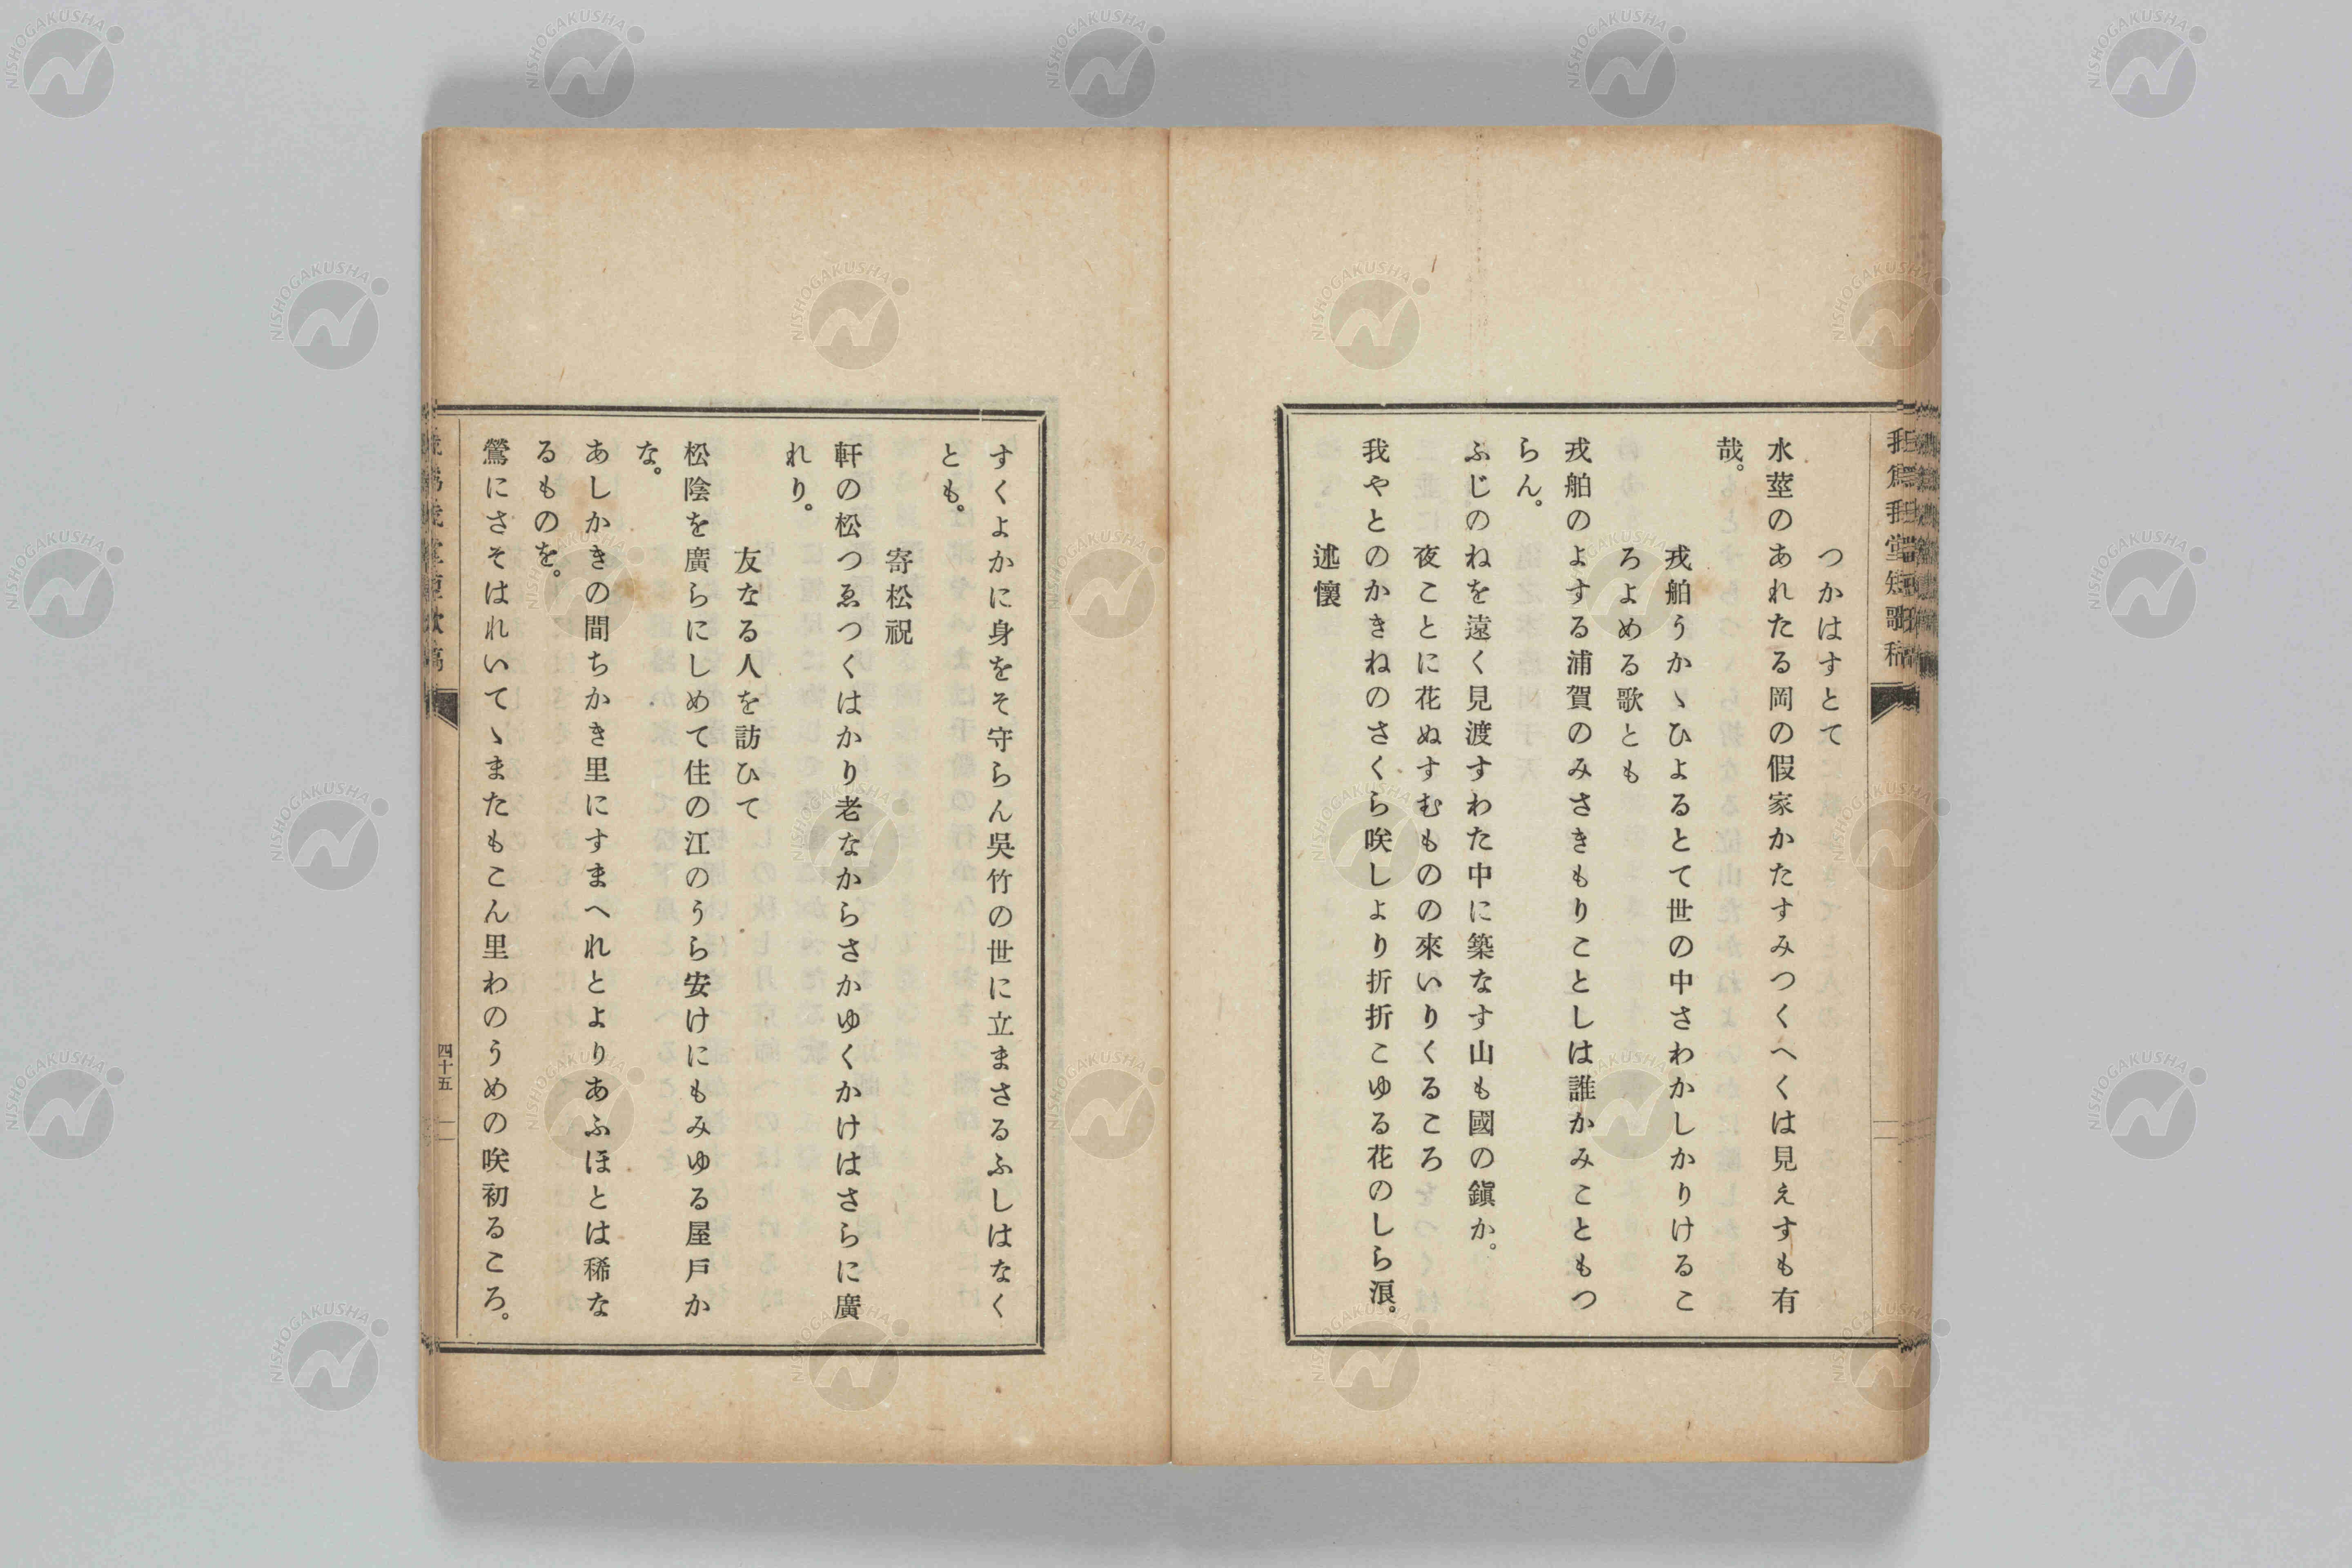 つかはすとて
水莖のあれたる岡の假家かたすみつくへくは見えすも有
哉。
戎舶うかゝひよるとて世の中さわかしかりけるこ
ろよめる歌とも
戎舶のよする浦賀のみさきもりことしは誰かみこともつ
らん。
ふじのねを遠く見渡すわた中に築なす山も國の鎭か。
夜ことに花ぬすむものの來いりくるころ
我やとのかきねのさくら咲しより折折こゆる花のしら浪。
述懷
すくよかに身をそ守らん吳竹の世に立まさるふしはなく
とも。
寄松祝
軒の松つゑつくはかり老なからさかゆくかけはさらに廣
れり。
友なる人を訪ひて
松陰を廣らにしめて住の江のうら安けにもみゆる屋戸か
な。
あしかきの間ちかき里にすまへれとよりあふほとは稀な
るものを。
鶯にさそはれいてゝまたもこん里わのうめの咲初るころ。
四十五
NISHOGAKUSHA